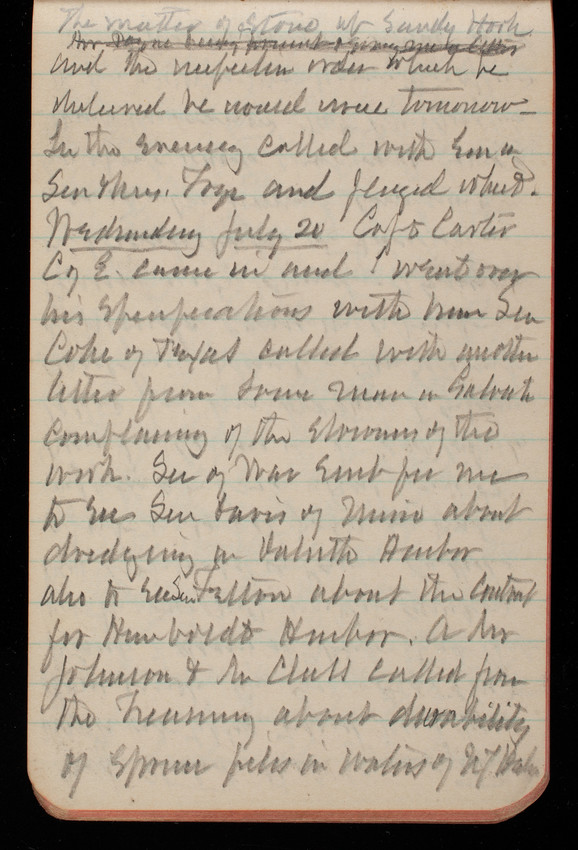 The matter of Stone at Sandy Hook
Mr Payne being present & giving me a letter
and the inspection order which he
delivered he would move tomorrow
In the Evening called with Em on
Sen & Mrs. Frye and played whist.
Wednesday July 20 Capt Carter
C of E. came in and I went over
his specifications with him Sen
Coke of Texas called with another
letter from some man in
complaining of the slowness of the
work. Sec of War sent for me
to see Sen Davis of Minn about
dredging in Duluth Harbor
also to see Sen Felton about the Contract
for Humboldt Harbor. A Mr
Johnson & Mr called from
the Treasury about durability
of Spruce piles in waters of